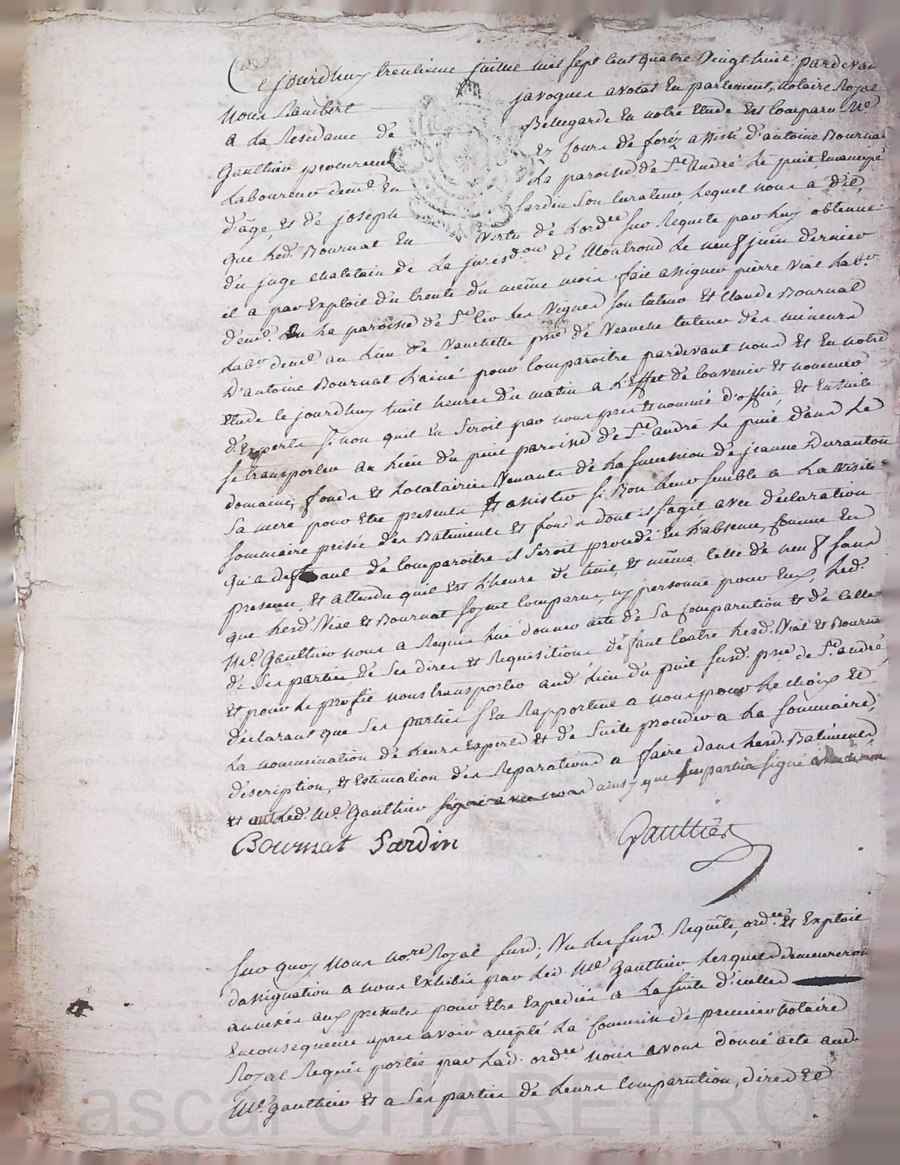 Ce jourdhuy treutieme juillet mil sept cent quatre vingt huit pardevant
Nous Rambert javogues avocat en parlement, notaire Royal
a la Residance de Bellegarde en notre Etude Est Comparu Me
Gaulthier procureur Ez Cours de forêz assisté d'antoine Bournat
Laboureur demt en La paroisse de St André Le puit Emancipé
d'âge, et de joseph Jardin Son Curateur, Lequel nous a dit,
que Led. Bournat En Vertu de Lordce sur Requete par Luy obtenue
du juge Chatelain de La jurisdon de Montrond Le neuf juin dernier
il a par Exploit du trente du même mois fait assigner pierre Vial Labr
demt En La paroisse de St Cir Les Vignes son tuteur Et Claude Bournat
Labr demt au Lieu de Vauchette psse de Veauche tuteur des mineurs
D'antoine Bournat L'ainé pour Comparoitre pardevant nous Et En notre
Etude Le jourdhuy huit heures du matin a L'Effet de Convenir et nommer
d'Experts Sinon quil En Seroit par nous pris et nommé d'office, et Ensuite
se transporter au Lieu du puit paroisse de St andré Le puit dans Le
domaine, fonds et Locatairie Venants de La succession de jeanne Duranton
Sa mere pour Etre presents Et assister si Bon Leur semble a La Visite
sommaire prisée des Batiments Et fonds dont il sagit avec declaration
qu'a deffaut de Comparoitre il Seroit procédé En L'absence, Comme En
presence, Et attendu quil est L'heure de huit, et même celle de neuf sans
que Lesd. Vial et Bournat soyent Comparus, ny personne pour Eux, Led.
Me. Gaulthier nous a Requis Lui donner acte de Sa Comparution Et de celle
de Ses parties de Ses dires et Requisitions défaut Contre Lesd. Vial Et Bournat
Et pour Le profit nous transporter aud. Lieu du puit susd. psse de St andré
déclarant que Ses parties S'En Rapportent a nous pour Le choix Et
La nommination de Leurs Experts Et de Suite proceder a La sommaire,
description, et Estimation des Reparations a faire dans Lesd. Batiments,
et a Led. Me. Gaulthier signé ainsy que ses parties signé
Bournat Jardin Gaulthier
Sur quoy Nous Nore Royal susd. Vu Les susd. Requête, ordce et Exploit
dassignation a nous Exhibés par Led. Me Gaulthier Lesquels demeureront
annexés aux presentes pour Etre Expediés a La suite d'icelles
En consequence apres avoir accepté La Commission de premier notaire
Royal Requis portée par Lad. ordce nous avons donné acte aud.
Me. Gaulthier Et a Ses parties de Leurs Comparution, dires Et
Pascal CHAREYRON